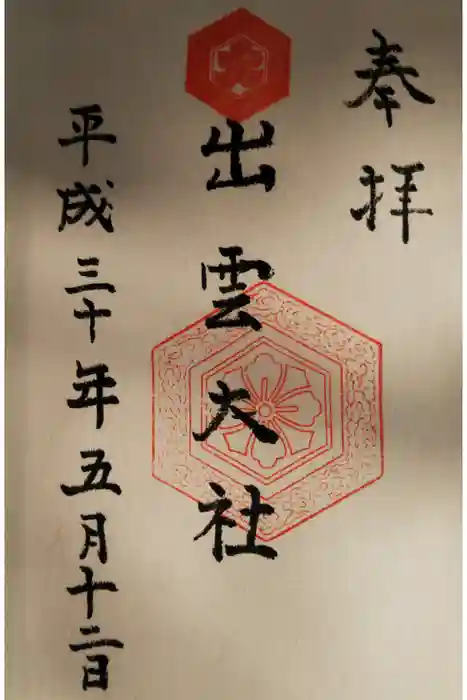 奉拝
出雲大社
平成三十年五月十二日